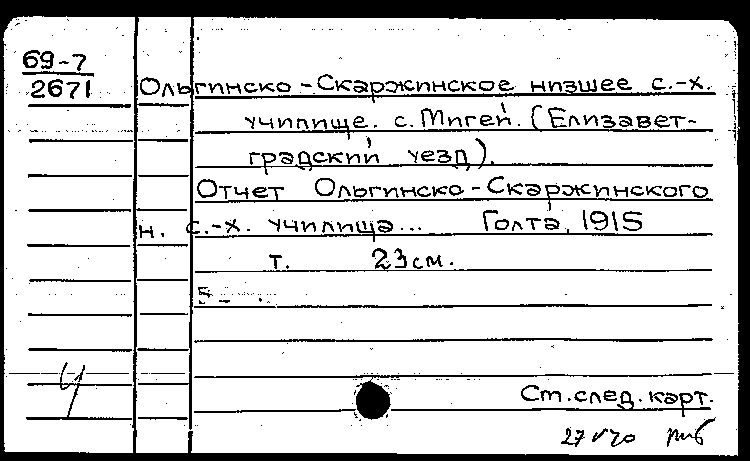 69-7
2671
Ольгинско-Скаржинское низшее с.-х.
училище. с. Мигей. (Елизавет-
градский уезд).
Отчет Ольгинско-Скаржинского
н. с.-х. училища... Голта, 1915
т. 23 см.
Ст. след. карт.
27 V 70